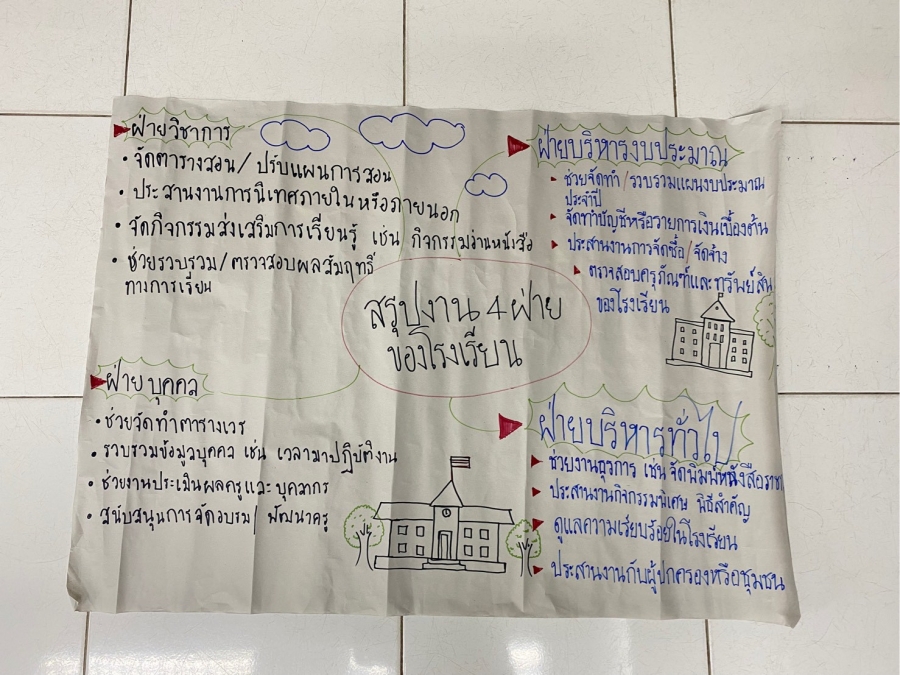 ฝ่ายวิชาการ
• จัดตารางสอน/ ปรับแผนการสอน
• ประสานงานการนิเทศภายในหรือภายนอก
• จัดกิจกรรมส่งเสริมการเรียนรู้ เช่น กิจกรรมอ่านหนังสือ
• ช่วยรวบรวม/ตรวจสอบผลสัมฤทธิ์
ทางการเรียน
ฝ่ายบริหารงบประมาณ
ช่วยจัดทำ/รวบรวมแผนงบประมาณ
ประจำปี
จัดทำบัญชีหรือรายการเงินเบื้องต้น
ประสานงานการจัดซื้อ/จัดจ้าง
ตรวจสอบครุภัณฑ์และทรัพย์สิน
ของโรงเรียน
สรุปงาน 4 ฝ่าย
ของโรงเรียน
ฝ่ายบุคคล
• ช่วยจัดทำตารางเวร
• รวบรวมข้อมูลบุคคล เช่น เวลามาปฏิบัติงาน
• ช่วยงานประเมินผลครูและบุคลากร
• สนับสนุนการจัดอบรม/ พัฒนาครู
ฝ่ายบริหารทั่วไป
ช่วยงานธุรการ เช่น จัดพิมพ์หนังสือราช
ประสานงานกิจกรรมพิเศษ พิธีสำคัญ
ดูแลความเรียบร้อยในโรงเรียน
ประสานงานกับผู้ปกครองหรือชุมชน